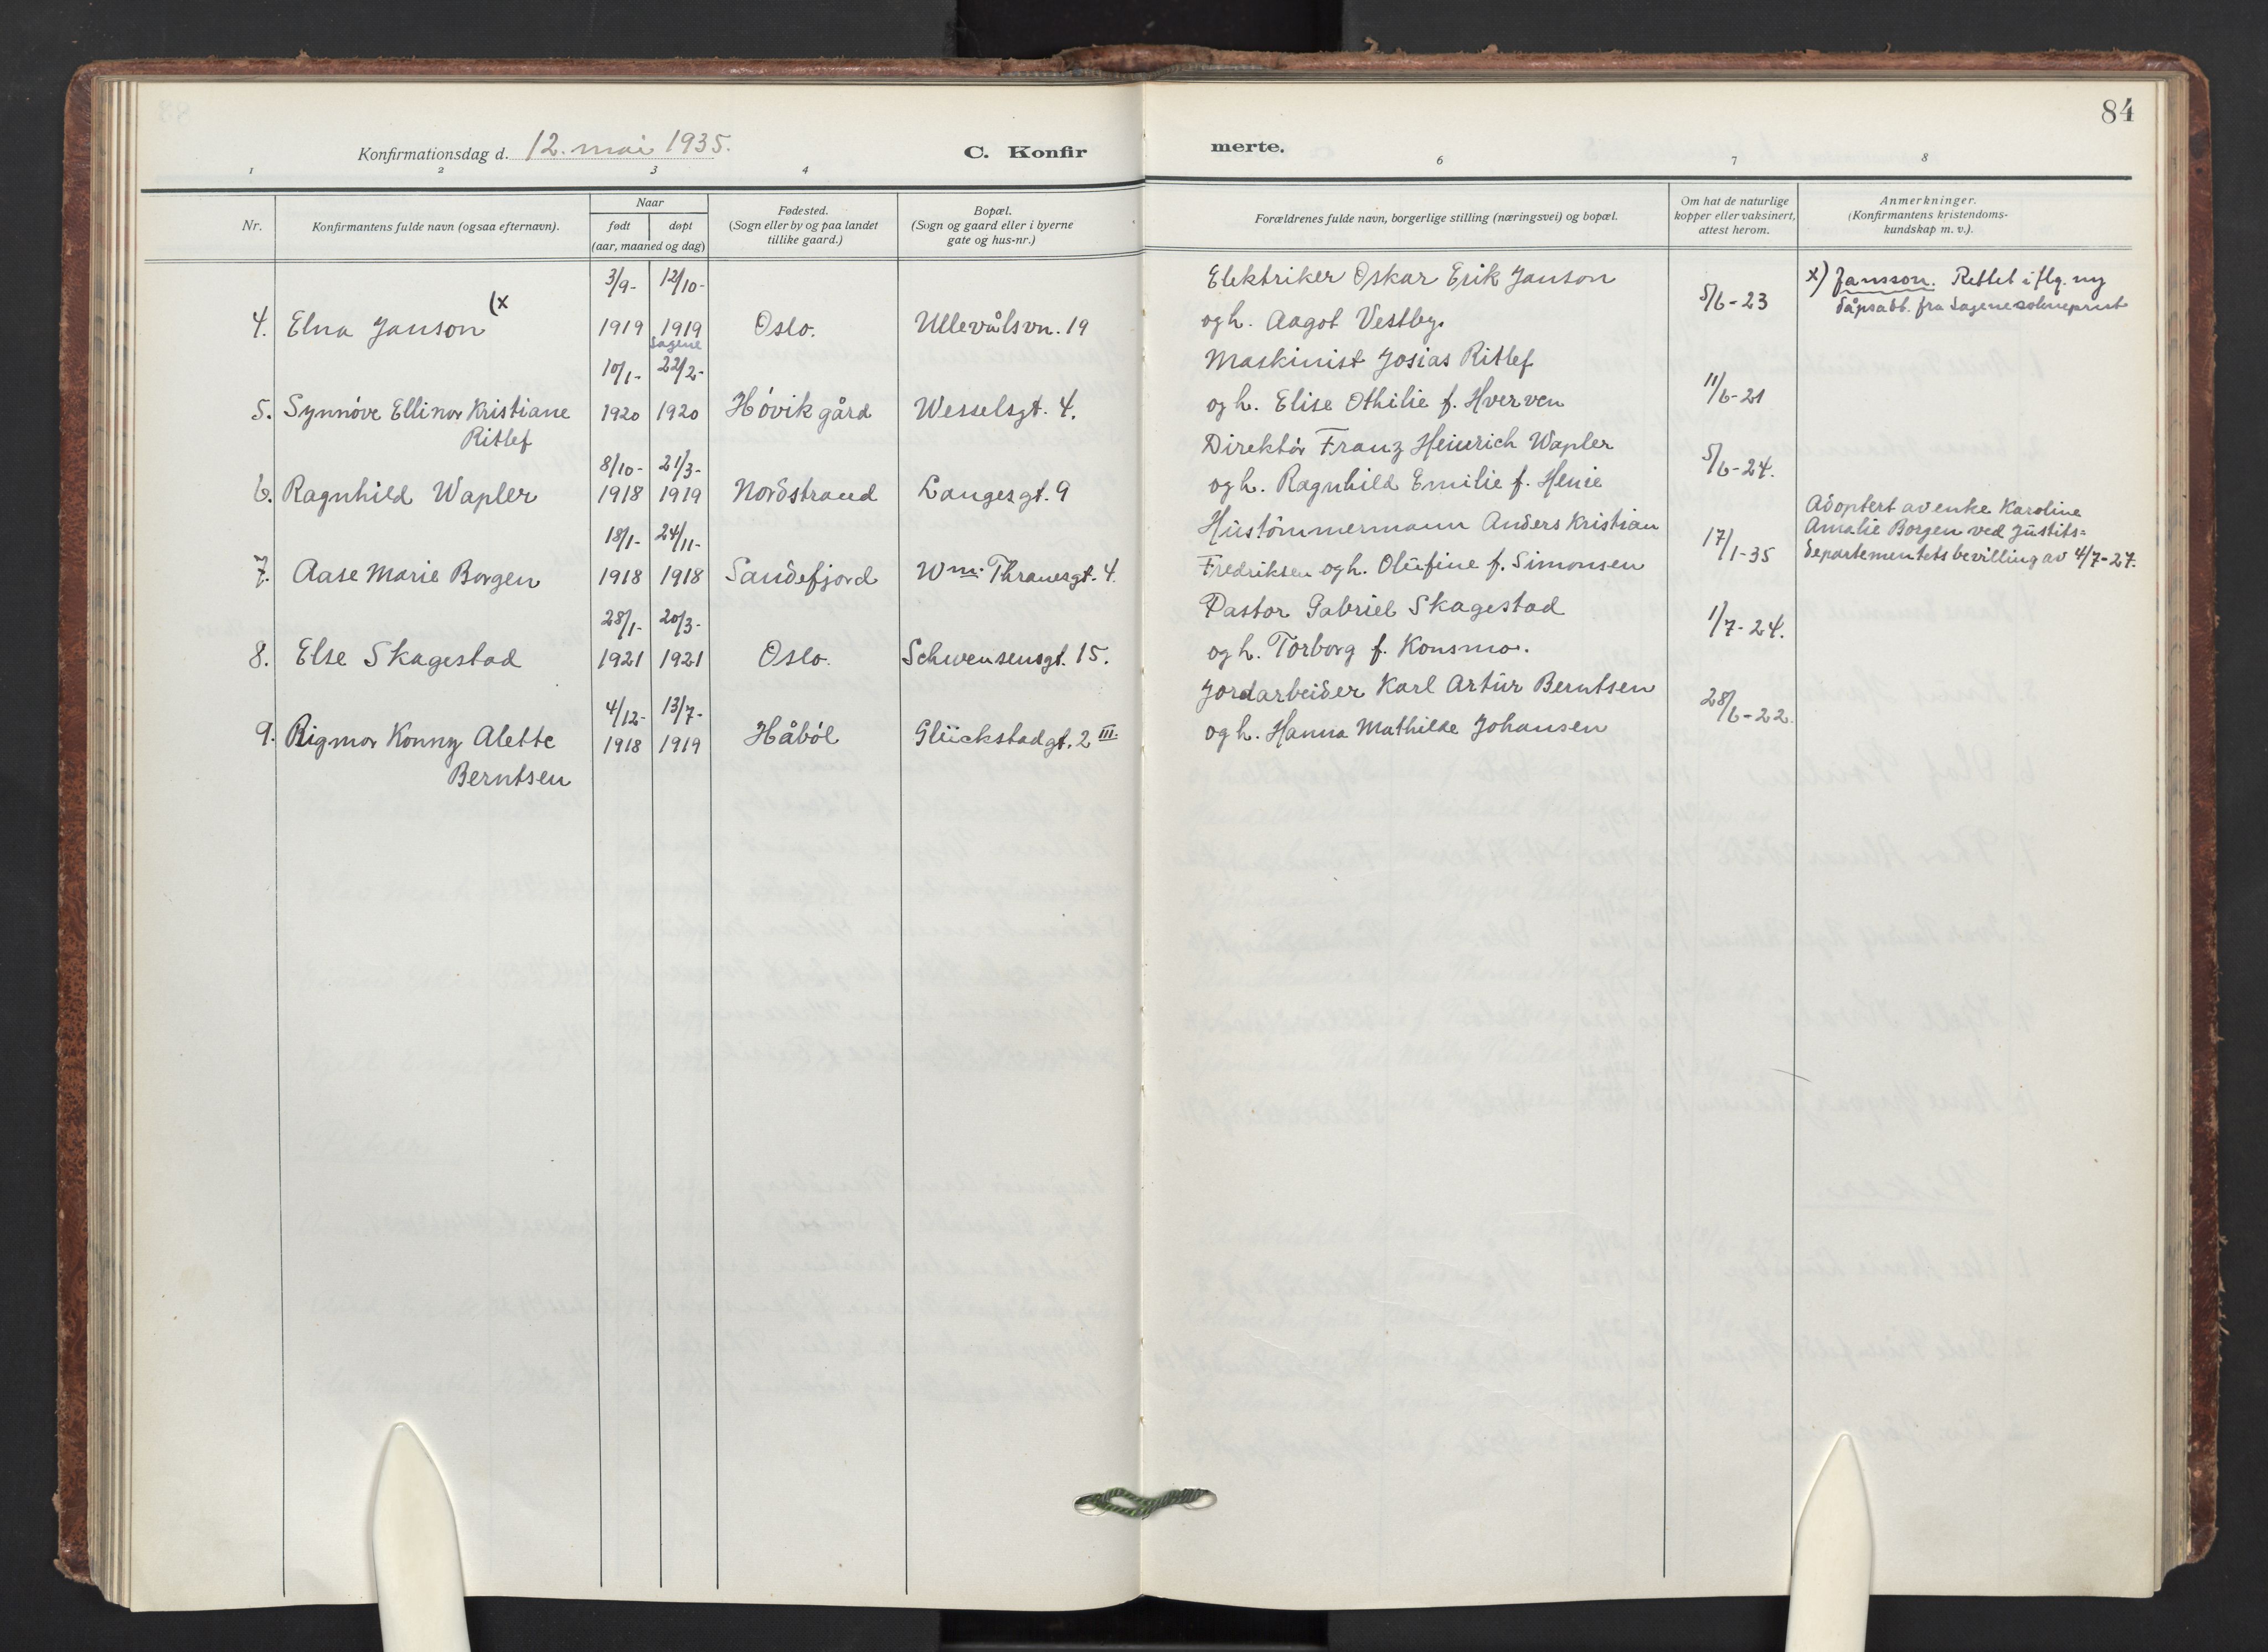 84
Konfirmationsdag d. 12. mai 1935.
C. Konfir merte.
1 2 3 4 6 7 8
Nr.
Konfirmantens fulde navn (ogsaa efternavn).
Naar
født døpt
(aar, maaned og dag)
Fødested.
(Sogn eller by og paa landet
tillike gaard.)
Bopæl.
(Sogn og gaard eller i byerne
gate og hus-nr.)
Forældrenes fulde navn, borgerlige stilling (næringsvei) og bopæl.
Om hat de naturlige
kopper eller vaksinert,
attest herom.
Anmerkninger.
(Konfirmantens kristendoms-
kundskap m. v.).
3/9- 12/10- Elektriker Oskar Erik Janson
4. Elna Janson (x 1919 1919 Oslo. Ullevålsvn. 19 og h. Aagot Vestby. 5/6-23
Sagene
x) Jansson. Rettet iflg. ny
dåpsatt. fra Sagene sokneprest
10/1- 22/2- Maskinist Josias Ritlef
5. Synnöve Ellinor Kristiane 1920 1920 Hövik gård Wesselsgt. 4. og h. Elise Othilie f. Hverven 11/6-21
Ritlef
8/10- 21/3- Direktör Franz Heinrich Wapler
6. Ragnhild Wapler 1918 1919 Nordstrand Langesgt. 9 og h. Ragnhild Emilie f. Henie 5/6-24.
18/1- 24/11- Hustömmermann Anders Kristian
7. Aase Marie Borgen 1918 1918 Sandefjord Wm. Thranesgt. 4. Fredriksen og h. Olufine f. Simonsen 17/1-35
Adoptert av enke Karoline
Amalie Borgen ved Justits=
departementets bevilling av 4/7-27.
28/1- 20/3- Pastor Gabriel Skagestad
8. Else Skagestad 1921 1921 Oslo. Schwensensgt. 15. og h. Torborg f. Konsmo. 1/7-24.
4/12- 13/7- Jordarbeider Karl Artur Berntsen
9. Rigmor Konny Alette 1918 1919 Håböl Glückstadgt. 2 III. og h. Hanna Mathilde Johansen 28/6-22.
Berntsen